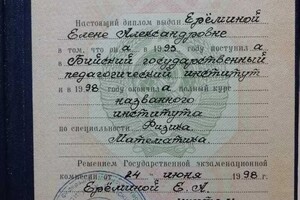 Настоящий диплом выдан Ерёминой
Елене Александровне
в том, что она в 1993 году поступила
в Бийский государственный
педагогический институт
и в 1998 году окончила полный курс
названного
института
по специальности Физика
Математика.
Решением Государственной экзаменационной
комиссии от 24 июня 1998 г.
Ерёминой Е. А.